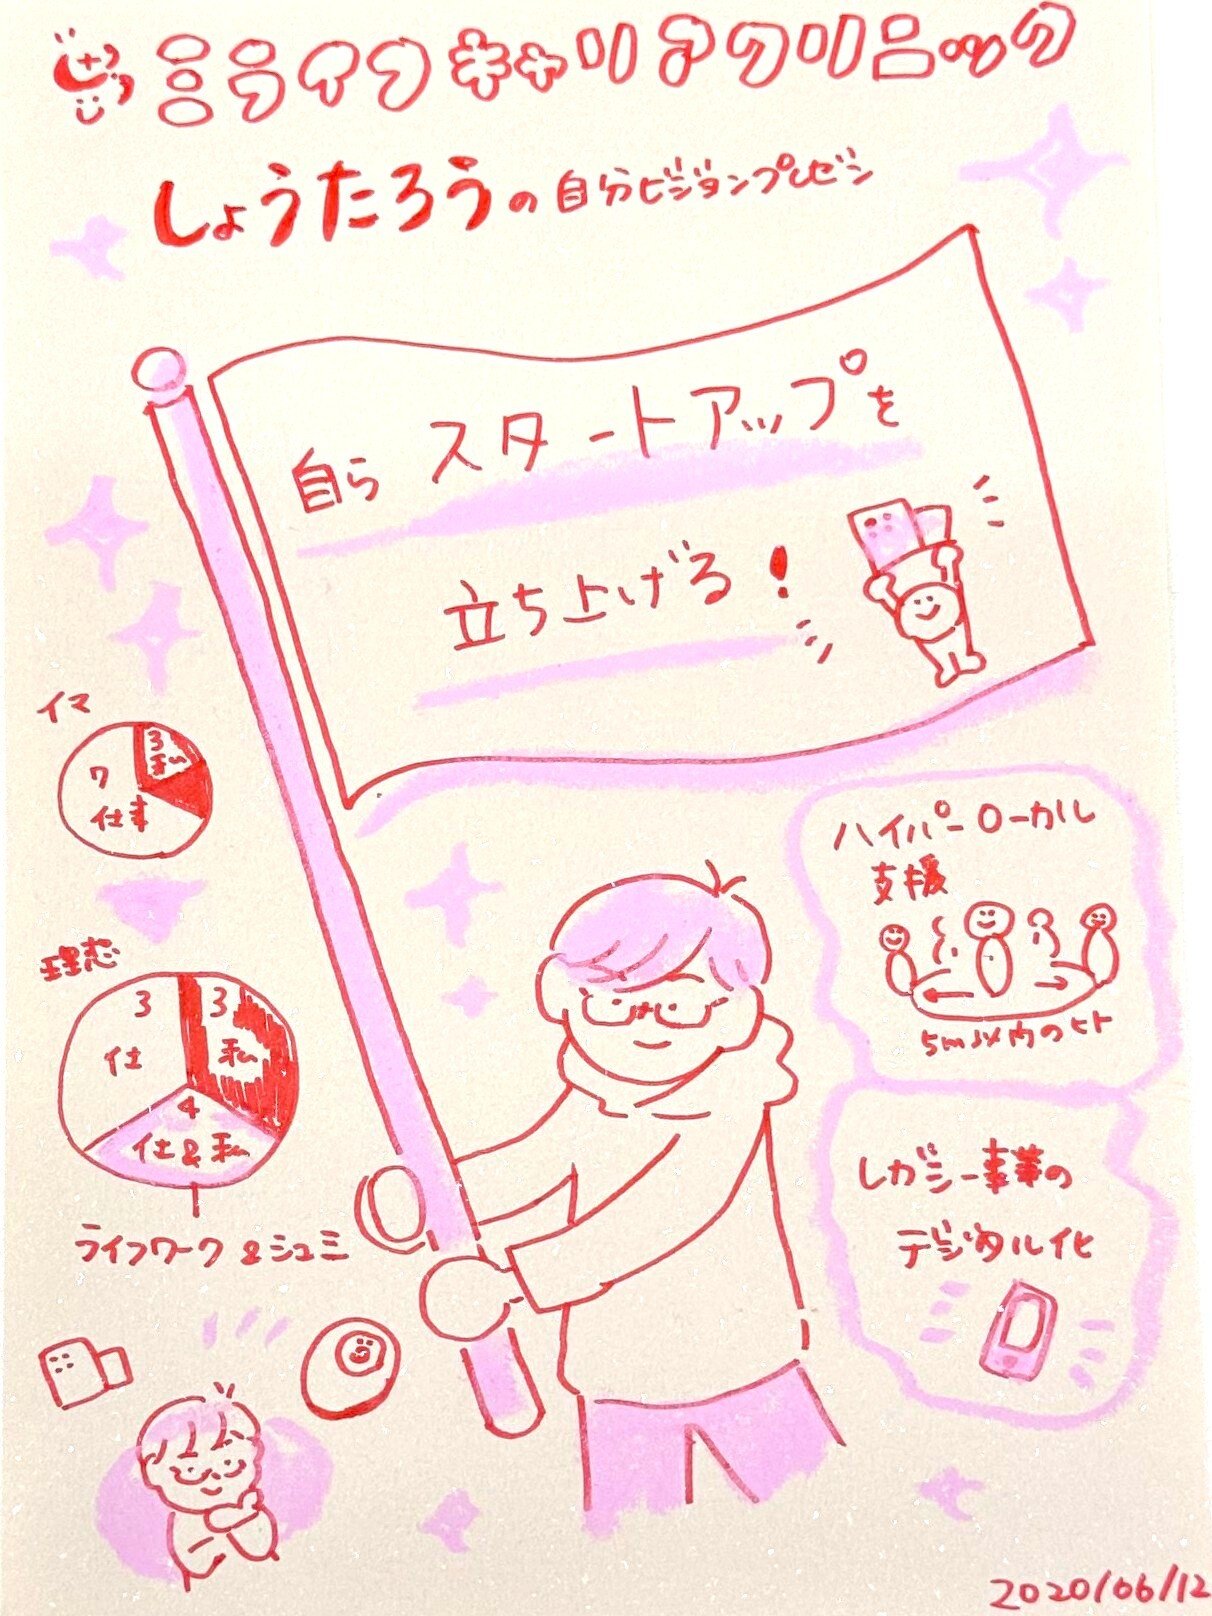 ミライフキャリアクリニック
しょうたろうの自分ビジョンプレゼン
自らスタートアップを
立ち上げる!
イマ
3
私
7
仕事
理想
3
仕
3
私
4
仕&私
ライフワーク&シュミ
ハイパーローカル
支援
5m以内のヒト
レガシー事業の
デジタル化
2020/06/12